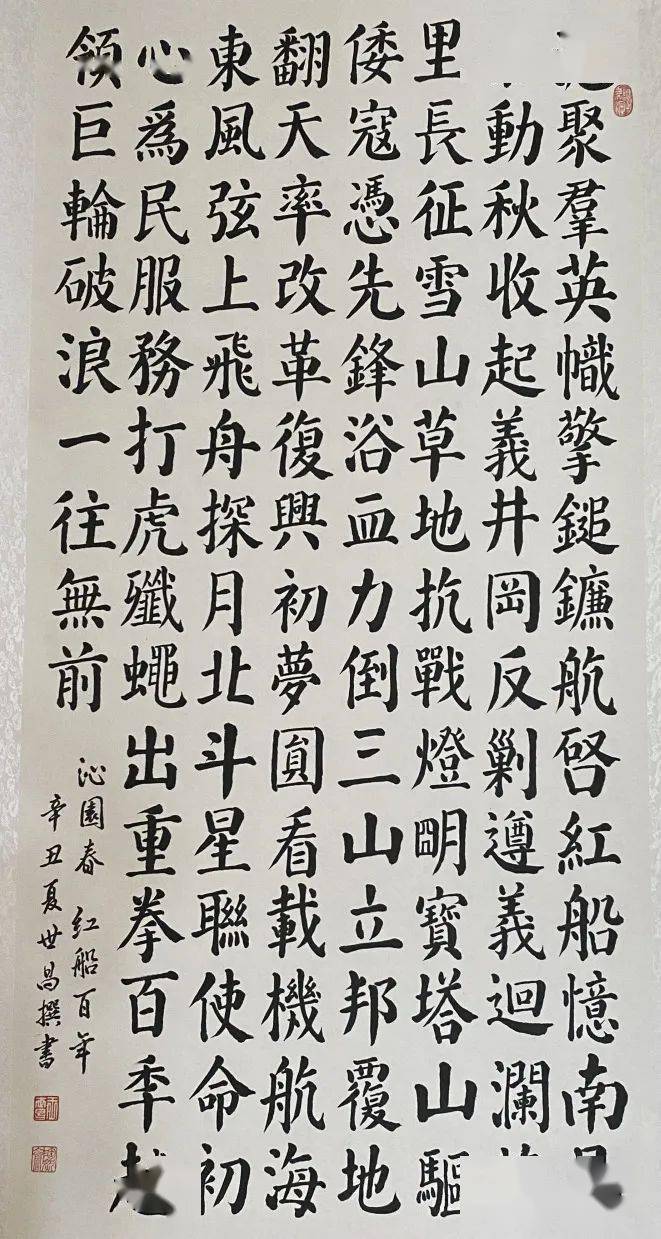 聚羣英幟擎鎚鐮航啓紅船憶南
動秋收起義井岡反剿遵義迴瀾
里長征雪山草地抗戰燈朙寶塔山驅
倭寇憑先鋒浴血力倒三山立邦覆地
翻天率改革復興初夢圓看載機航海
東風弦上飛舟探月北斗星聯使命初
心爲民服務打虎殲蠅出重拳百年
領巨輪破浪一往無前
沁園春 紅船百年
辛丑夏世昌撰書